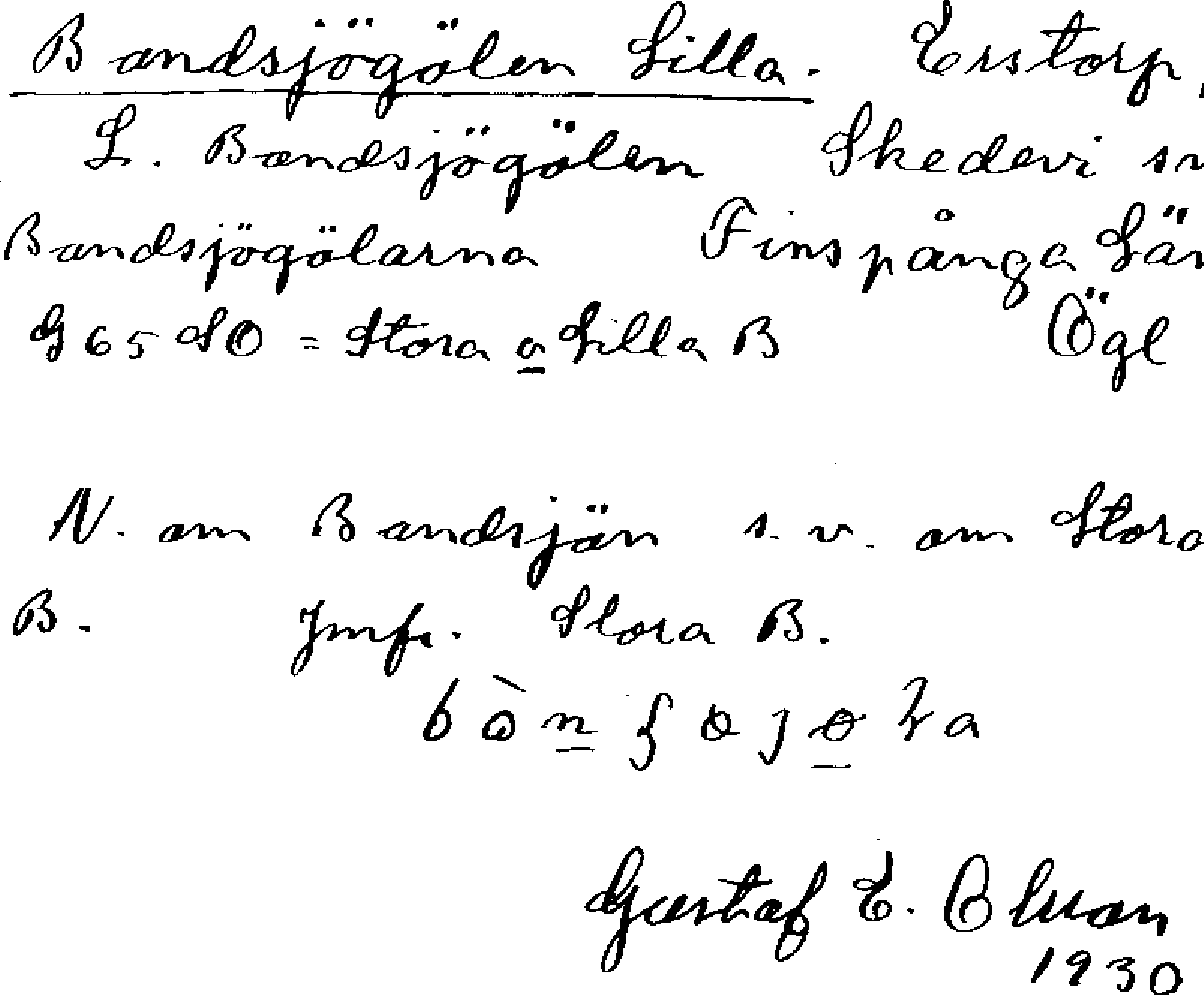 Bandsjögölen Lilla. Erstorp,
L. Bandsjögölen Skedevi
Bandsjögölarna Finspånga Län
G 65 SO = Stora o Lilla B Ögl
N. om Bandsjön s.v. om Stora
B. Jmfr. Stora B.
Gustaf E. Olson
1930